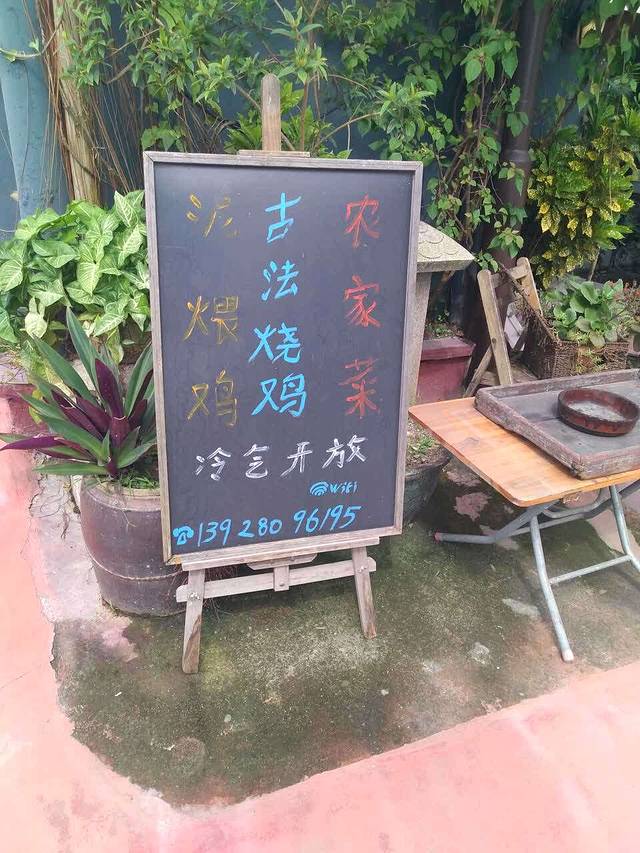 农家菜
古法烧鸡
泥煨鸡
冷气开放
Wifi
13928096195